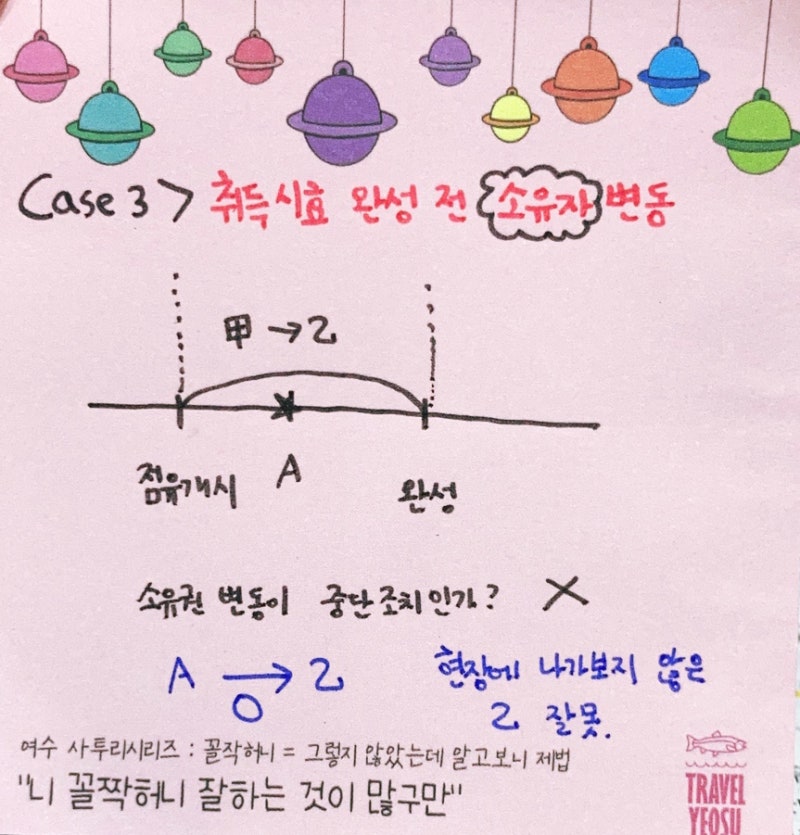 Case 3 > 취득시효 완성 전 소유자 변동
甲 → 乙
점유개시 A 완성
소유권 변동이 중단조치인가? X
A → 乙 현장에 나가보지 않은
O 乙 잘못.
여수 사투리시리즈 : 꼴작허니 = 그렇지 않았는데 알고보니 제법
"니 꼴짝허니 잘하는 것이 많구만"
TRAVEL
YEOSU